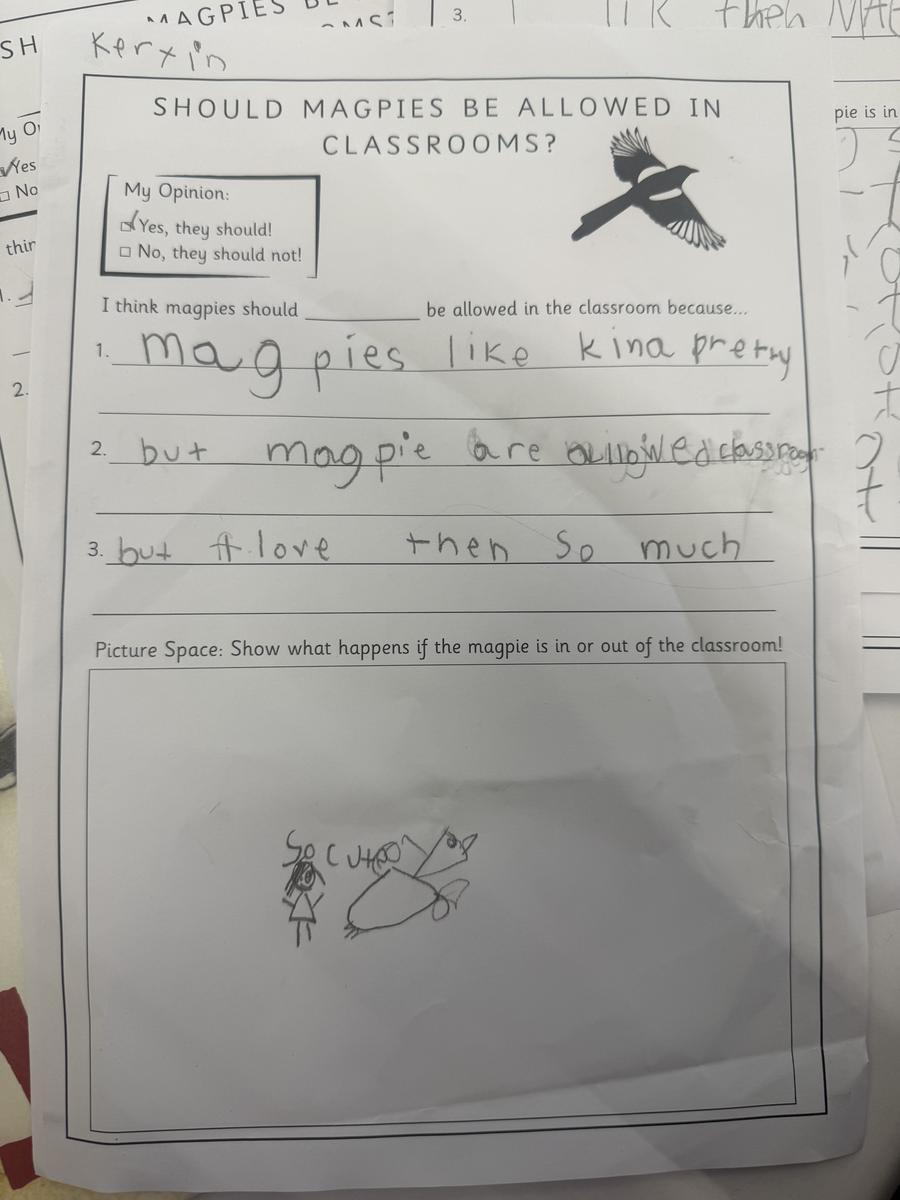 MAGPIES
3.
then
SH
Kerxin
SHOULD MAGPIES BE ALLOWED IN
CLASSROOMS?
My Opinion:
Yes, they should!
No, they should not!
Yes
No
pie is in
I think magpies should ________ be allowed in the classroom because...
1. magpies like kina pretty
2.
2. but magpie are
3. but love then so much
Picture Space: Show what happens if the magpie is in or out of the classroom!
So